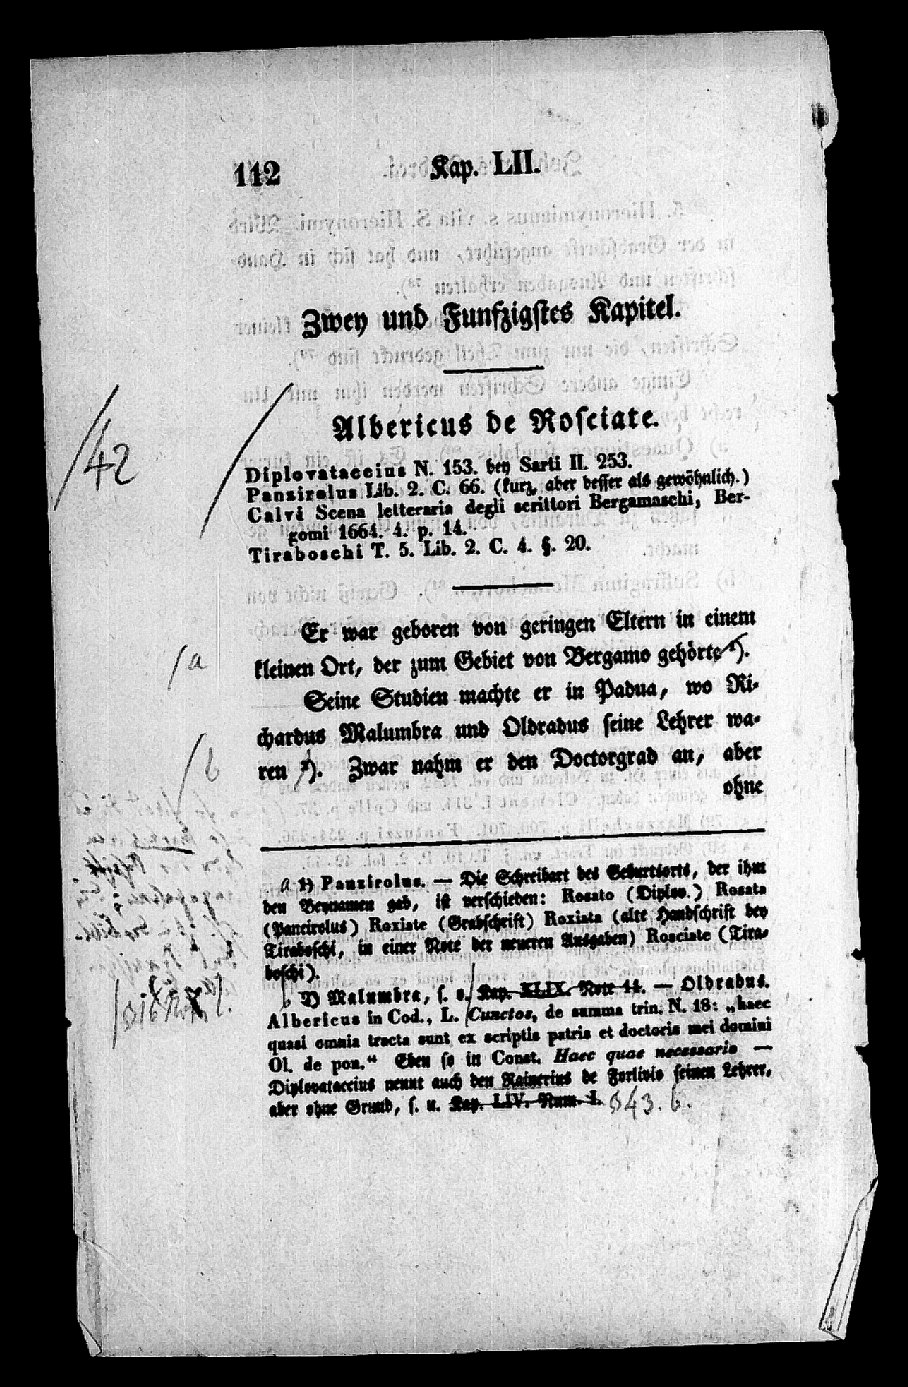 112 Kap. LII.
Zwey und Funfzigstes Kapitel.
Albericus de Rosciate.
42
Diplovataccius N. 153. bey Sarti II. 253.
Panzirolus Lib. 2. C. 66. (kurz, aber besser als gewöhnlich.)
Calvi Scena letteraria degli scrittori Bergamaschi, Ber-
gomi 1664. 4. p. 14.
Tiraboschi T. 5. Lib. 2. C. 4. §. 20.
Er war geboren von geringen Eltern in einem
kleinen Ort, der zum Gebiet von Bergamo gehörte ¹).
a
Seine Studien machte er in Padua, wo Ri-
chardus Malumbra und Oldradus seine Lehrer wa-
ren ²). Zwar nahm er den Doctorgrad an, aber
b
ohne
a 1) Panzirolus. — Die Schreibart des Geburtsorts, der ihm
den Beynamen gab, ist verschieden: Rosato (Diplov.) Rosata
(Pancirolus) Roxiate (Grabschrift) Roxiata (alte Handschrift bey
Tiraboschi, in einer Note der neueren Ausgaben) Rosciate (Tira-
boschi).
b 2) Malumbra, s. o. Kap. XLIX. Note 14. — Oldradus.
Albericus in Cod., L. Cunctos, de summa trin. N. 18: „haec
quasi omnia tracta sunt ex scriptis patris et doctoris mei domini
Ol. de pon.“ Eben so in Const. Haec quae necessario —
Diplovataccius nennt auch den Rainerius de Forlivio seinen Lehrer,
aber ohne Grund, s. u. Kap. LIV. Num. I. 343. b.